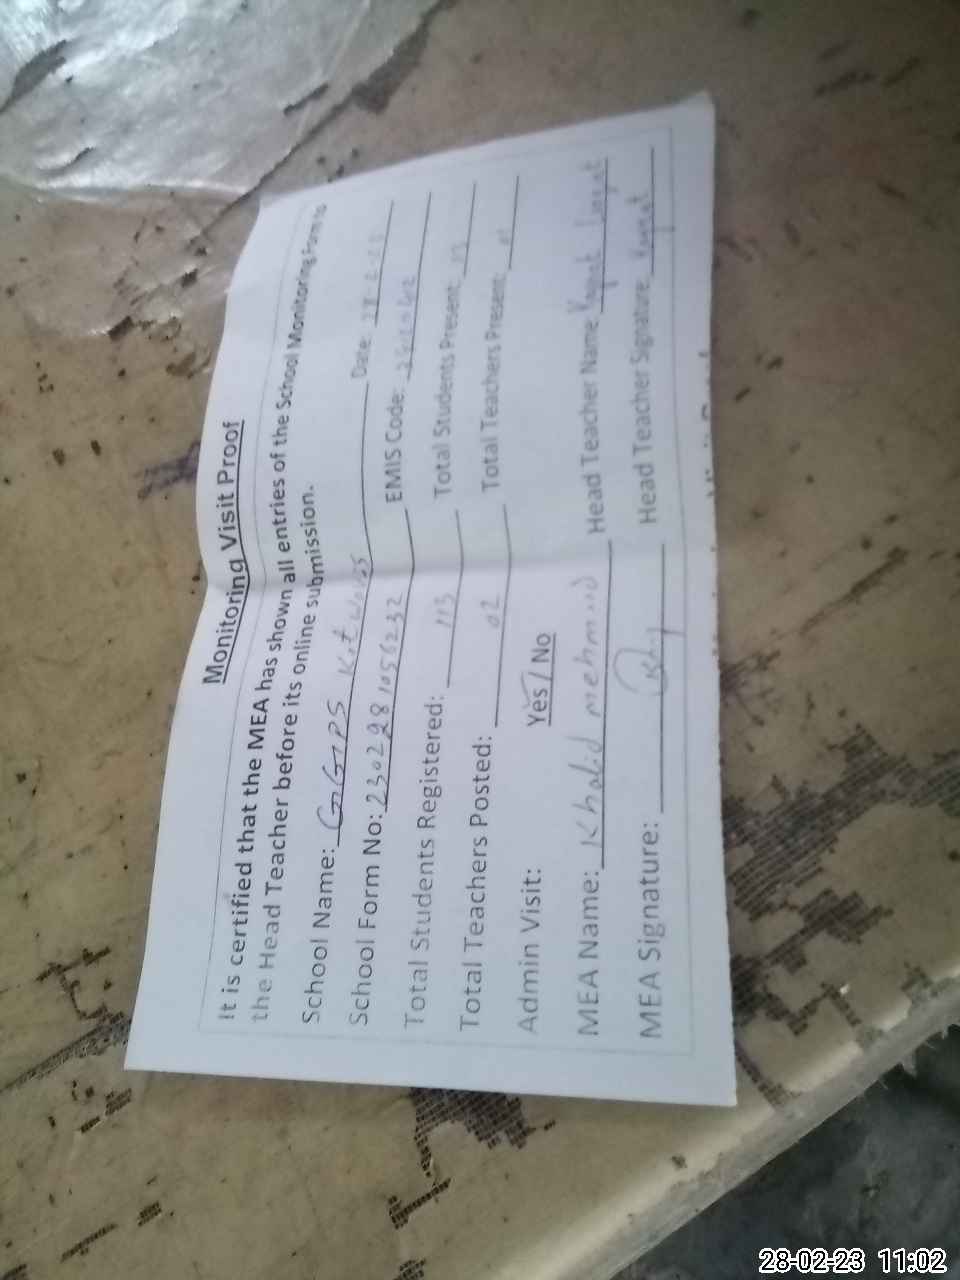 Monitoring Visit Proof
It is certified that the MEA has shown all entries of the School Monitoring Form to
the Head Teacher before its online submission.
School Name: GGPS Kot Date:
School Form No: 2302281056232 EMIS Code:
Total Students Registered: 113 Total Students Present:
Total Teachers Posted: 02 Total Teachers Present: 01
Admin Visit: Yes / No
MEA Name: Khalid mehmood Head Teacher Name:
MEA Signature: Head Teacher Signature:
28-02-23 11:02